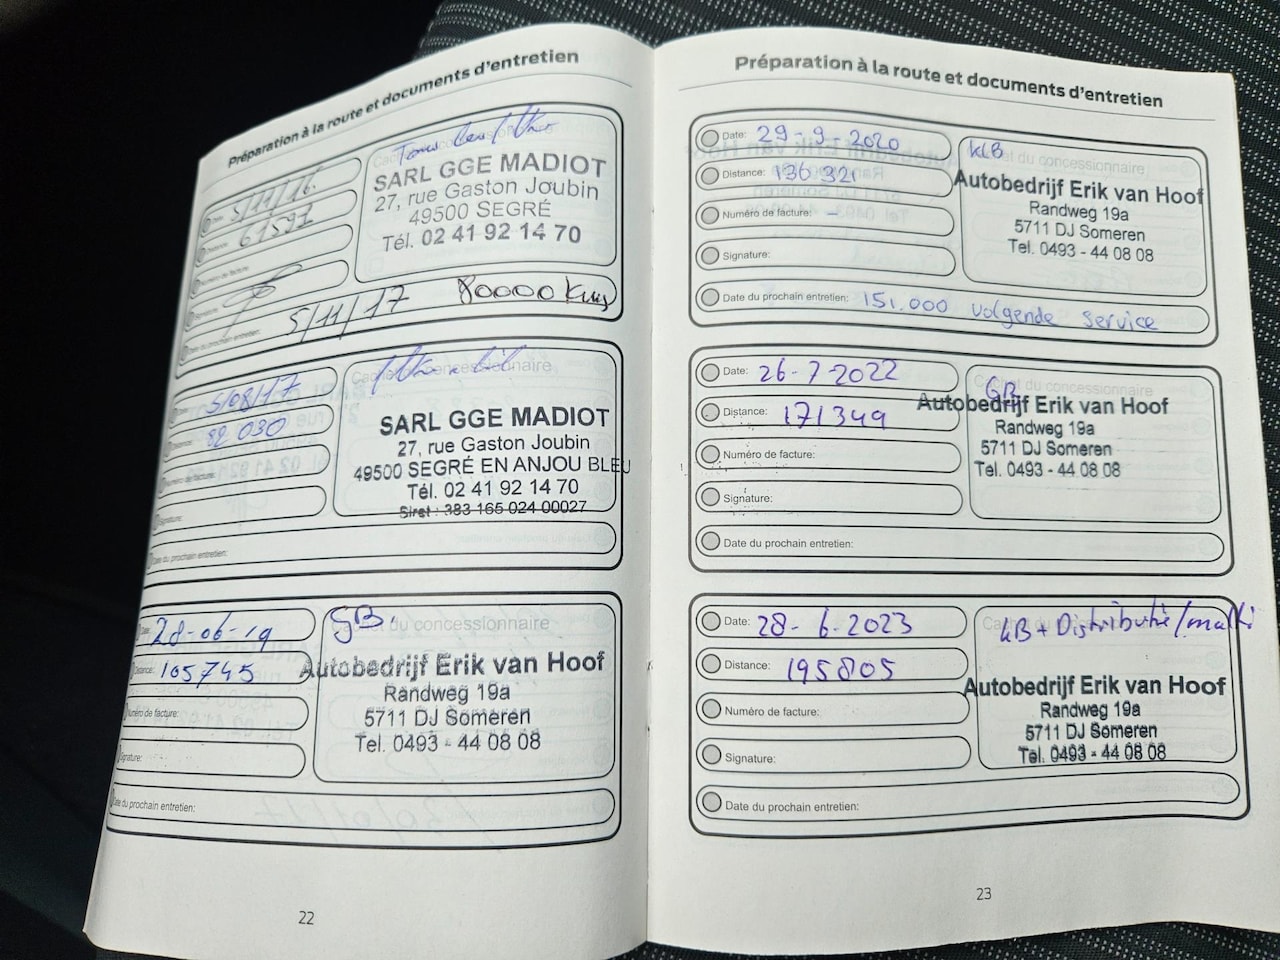 Préparation à la route et documents d'entretien
Cachet du concessionnaire
SARL GGE MADIOT
27, rue Gaston Joubin
49500 SEGRÉ
Tél. 02 41 92 14 70
Date: 5/11/16
Distance: 61597
Numéro de facture:
Signature:
Date du prochain entretien: 5/11/17 80000 Kms
Cachet du concessionnaire
5/08/17
82 030
Numéro de facture:
Signature:
SARL GGE MADIOT
27, rue Gaston Joubin
49500 SEGRÉ EN ANJOU BLEU
Tél. 02 41 92 14 70
Siret : 383 165 024 00027
Date du prochain entretien:
Date: 28-06-19
Distance: 105745
Numéro de facture:
Signature:
GB.
Cachet du concessionnaire
Autobedrijf Erik van Hoof
Randweg 19a
5711 DJ Someren
Tel. 0493 - 44 08 08
Date du prochain entretien:
22
Préparation à la route et documents d'entretien
Date: 29-9-2020
Distance: 136 321
Numéro de facture: -
Signature:
KB
Cachet du concessionnaire
Autobedrijf Erik van Hoof
Randweg 19a
5711 DJ Someren
Tel. 0493 - 44 08 08
Date du prochain entretien: 151.000 volgende service
Date: 26-7-2022
Distance: 171349
Numéro de facture:
Signature:
GB
Cachet du concessionnaire
Autobedrijf Erik van Hoof
Randweg 19a
5711 DJ Someren
Tel. 0493 - 44 08 08
Date du prochain entretien:
Date: 28-6-2023
Distance: 195805
Numéro de facture:
Signature:
GB + Distributie/multi
Autobedrijf Erik van Hoof
Randweg 19a
5711 DJ Someren
Tel. 0493 - 44 08 08
Date du prochain entretien:
23